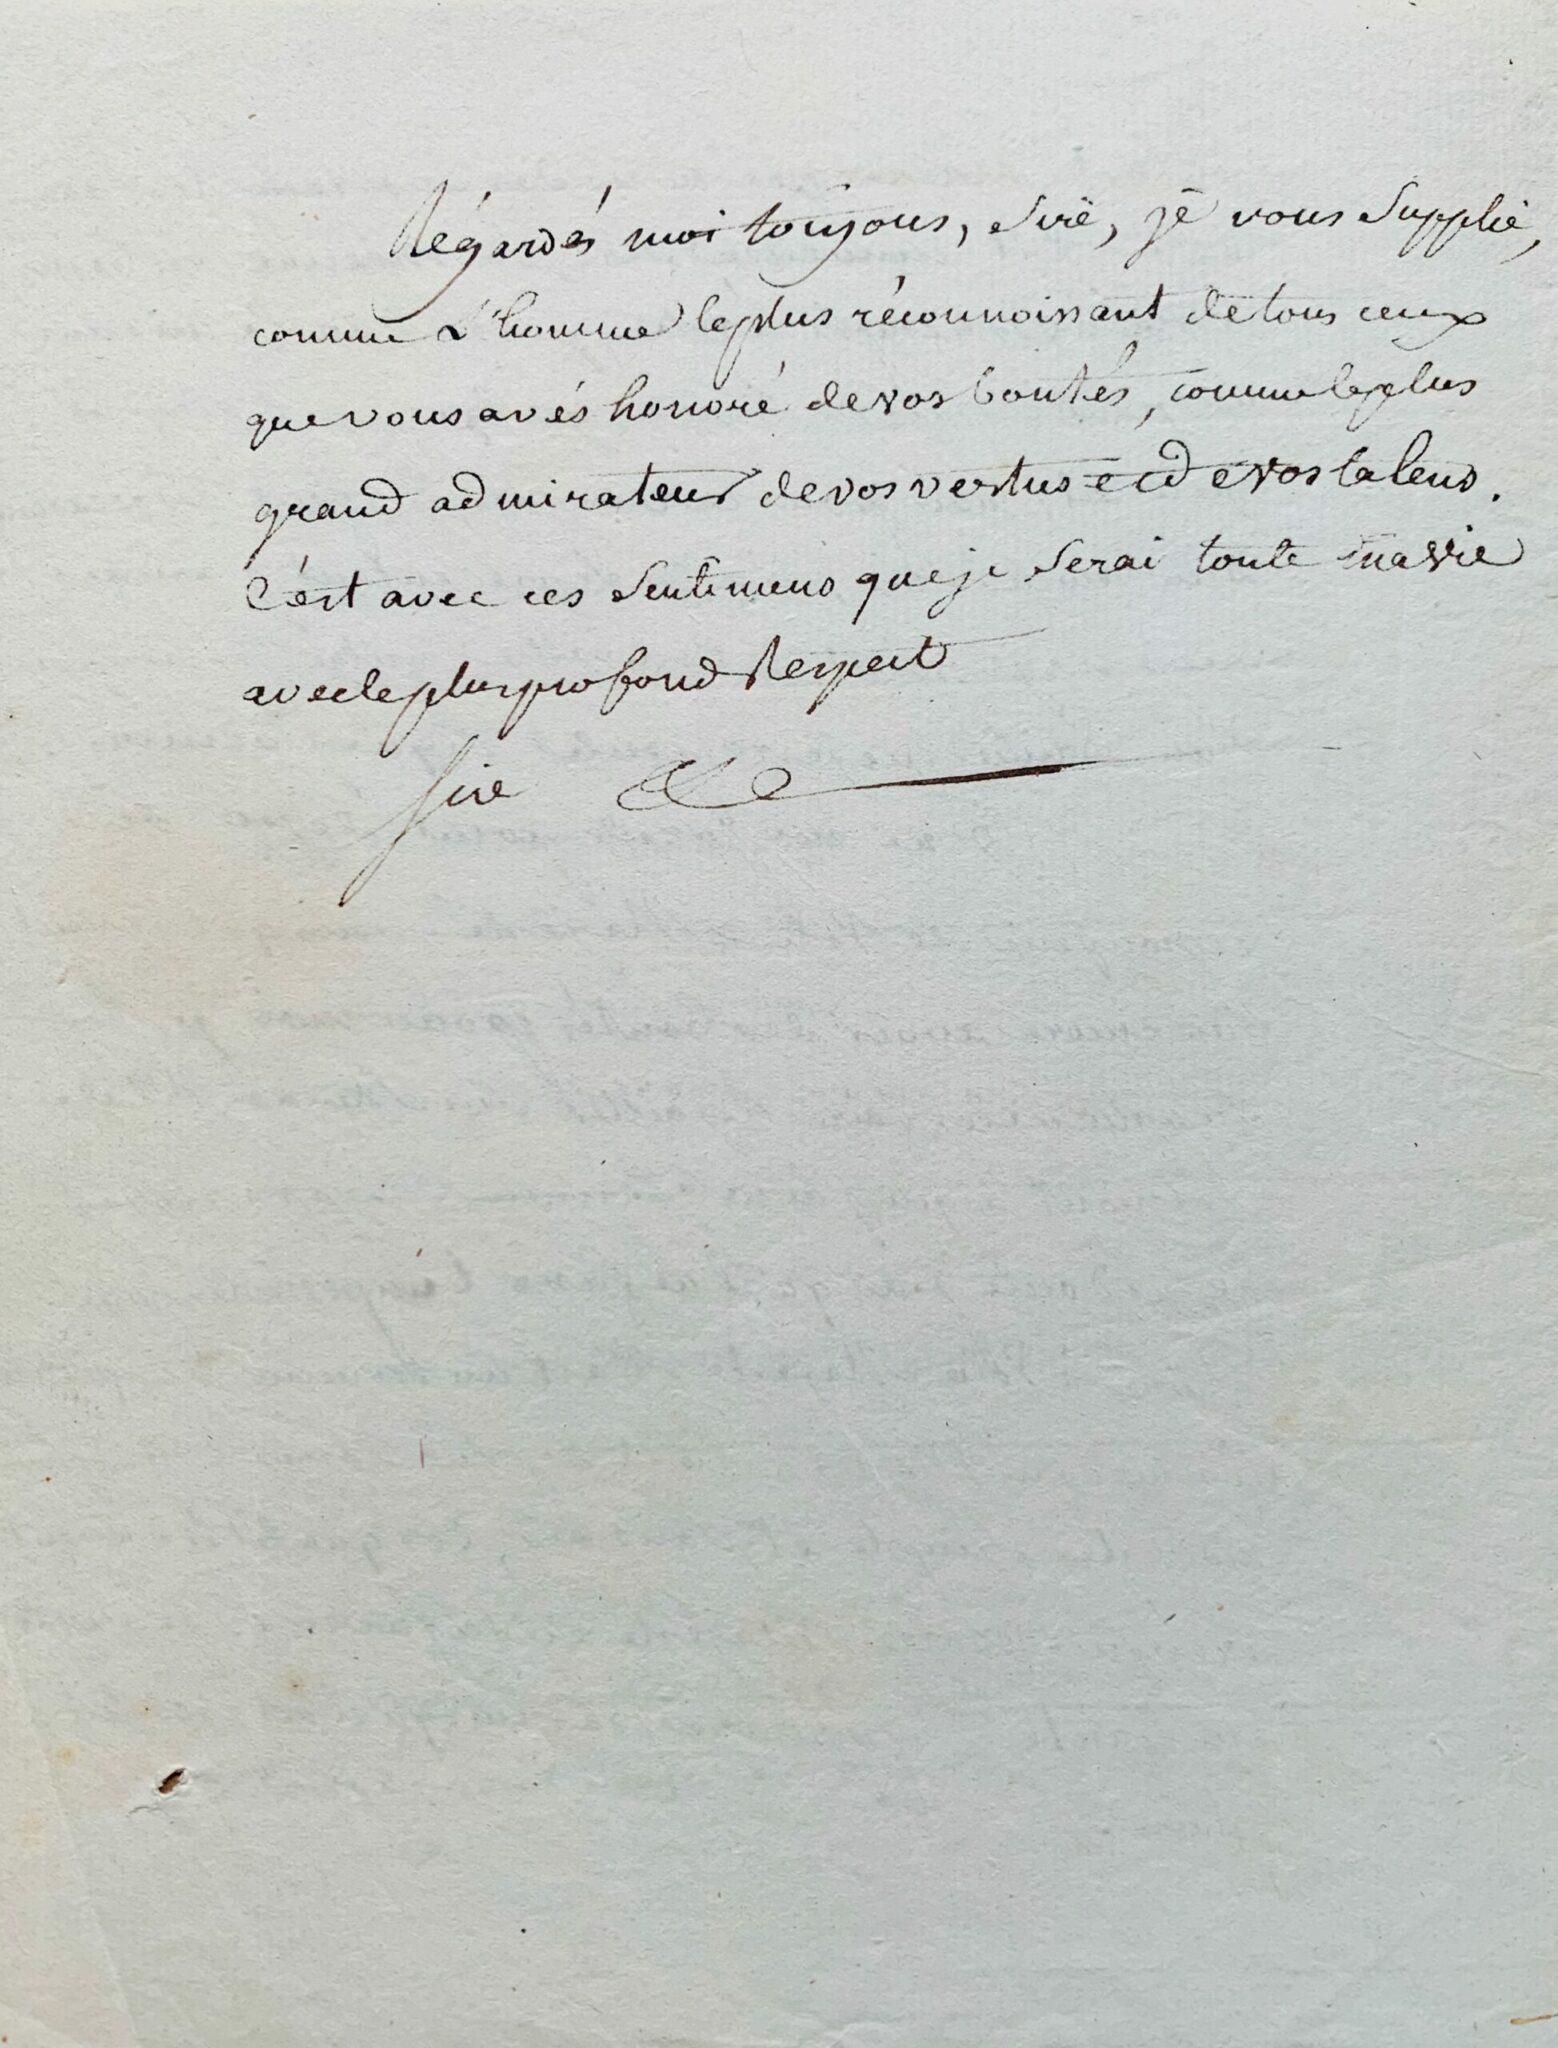 Régardés moi toujous, Sire, je vous Supplie,
comme L'homme le plus réconnoissant de tous ceux
que vous avés honoré de vos bontés, comme le plus
grand admirateur de vos vertus et de vos talens.
C'est avec ces Sentimens que je Serai toute ma vie
avec le plus profond Respect
Sire &c